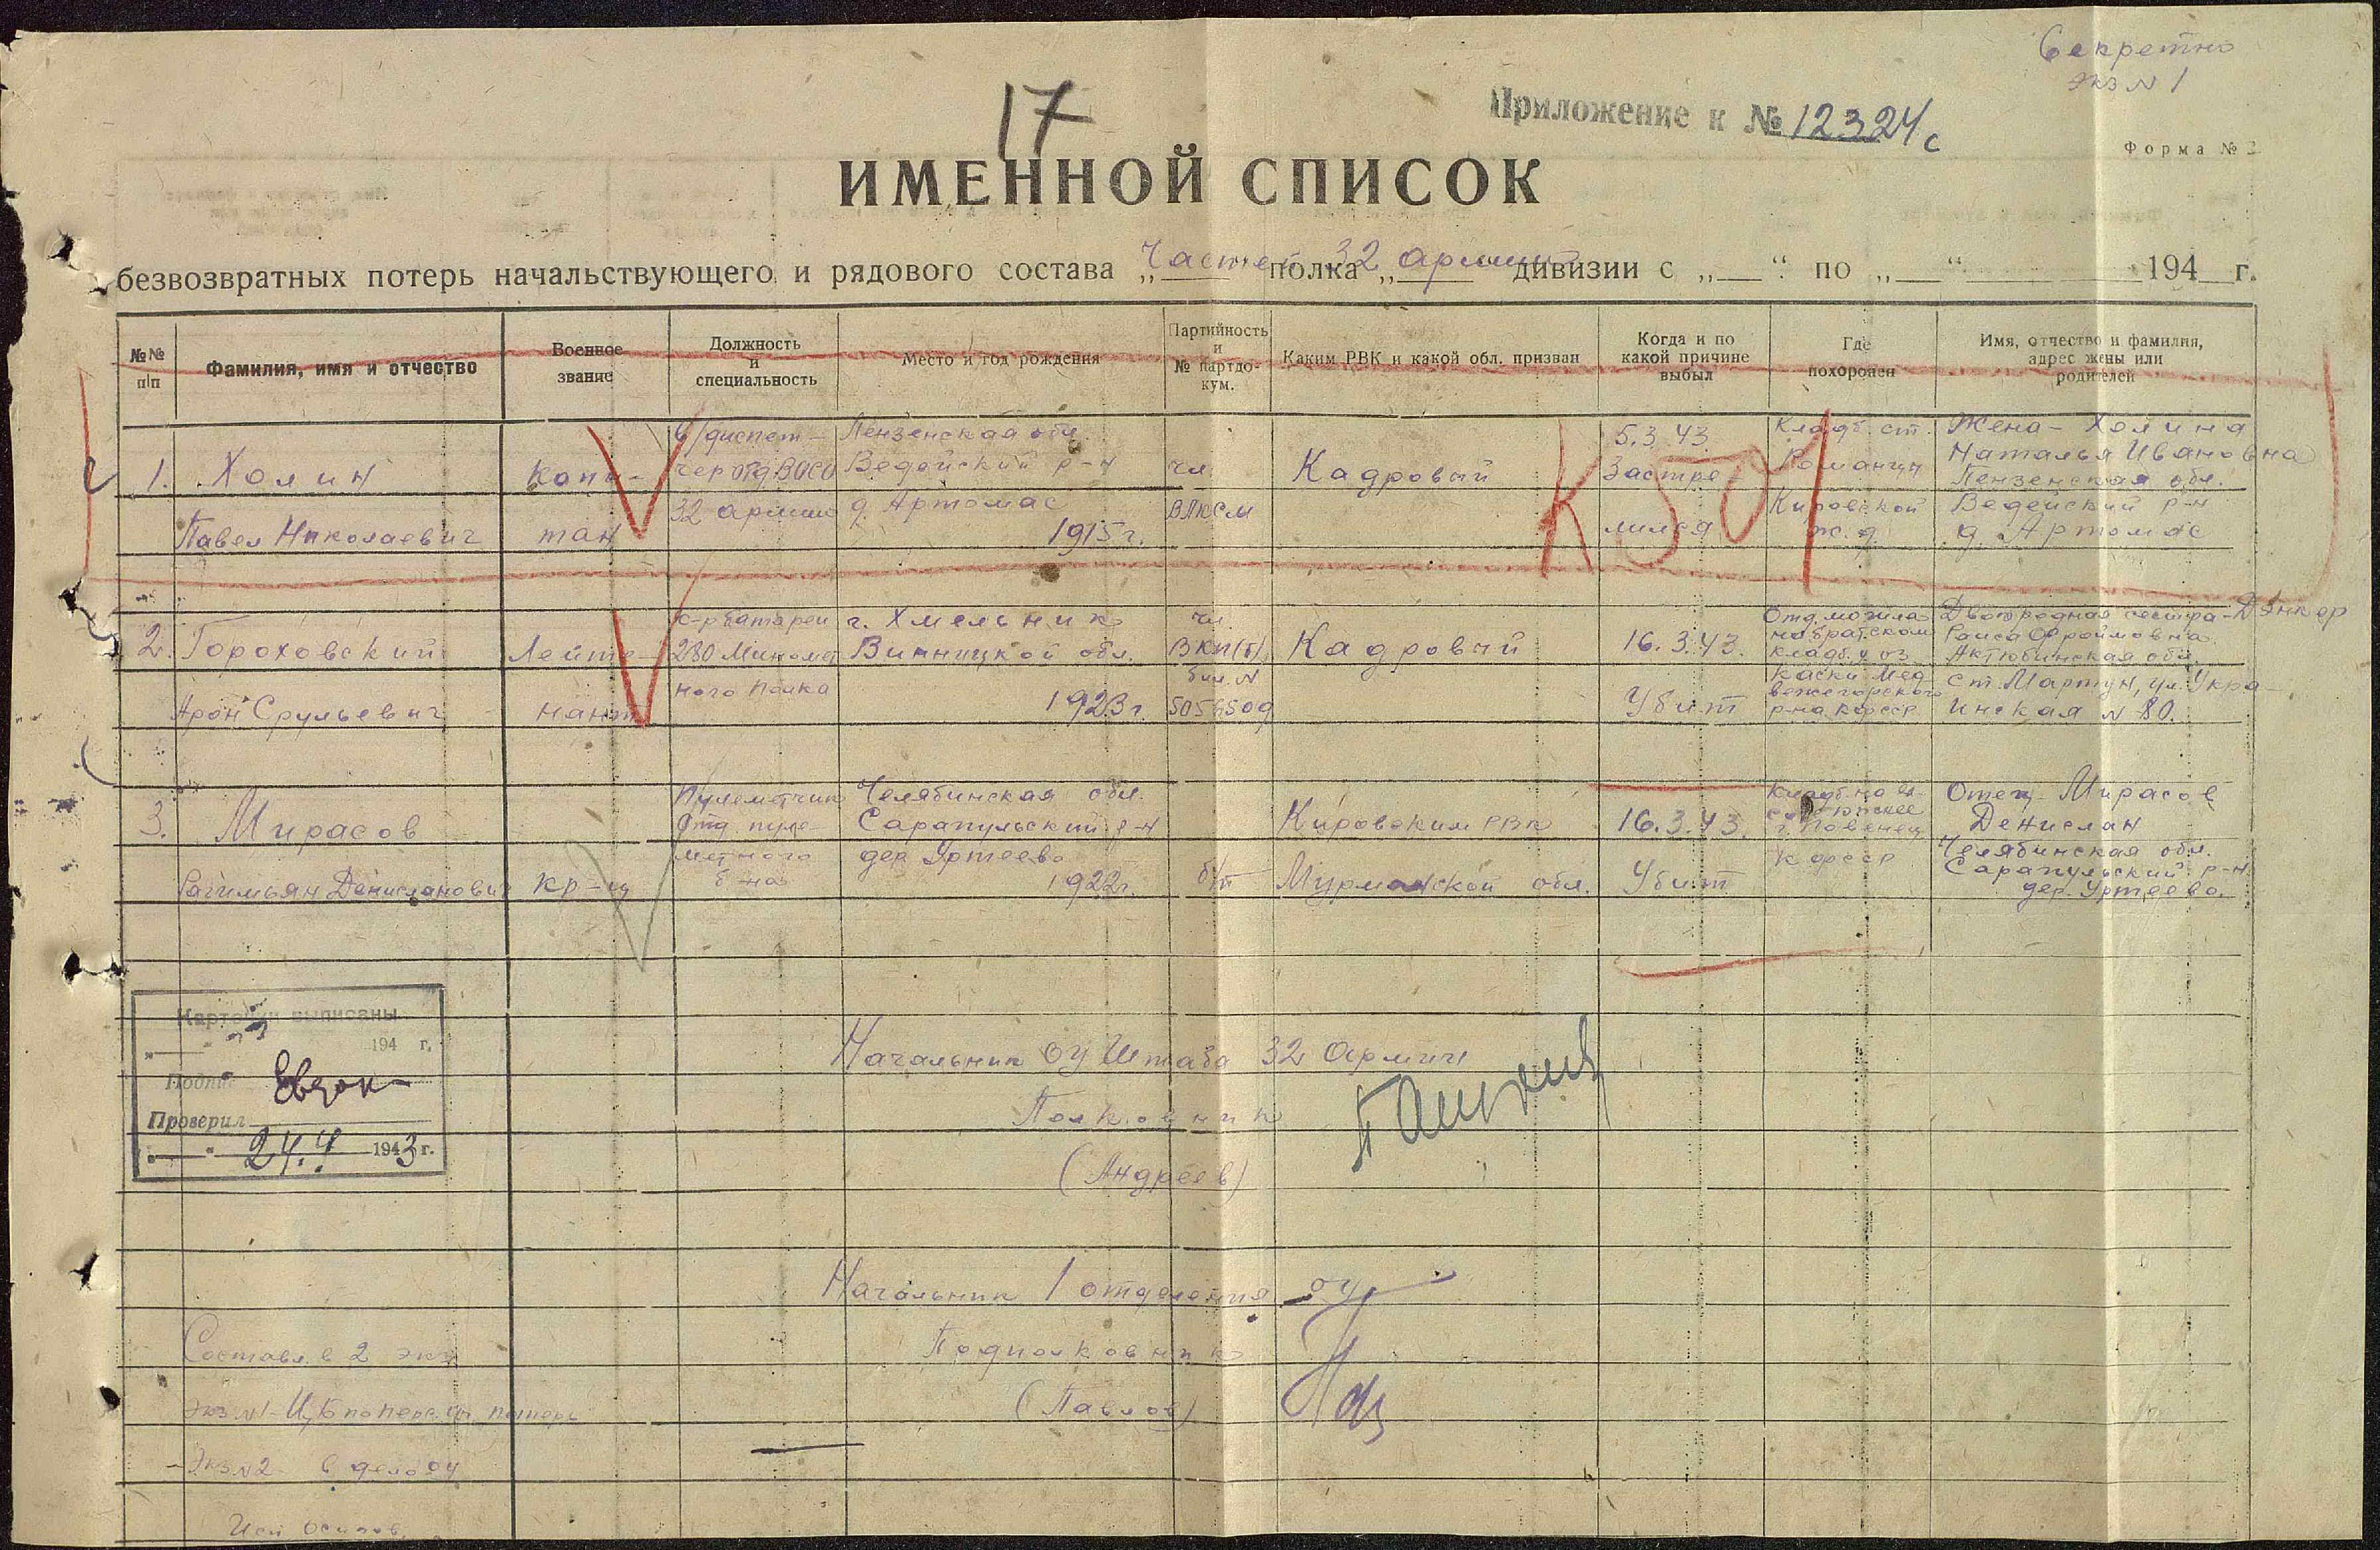 Секретно
экз N 1
17
Приложение к № 12324с
Форма № 2
ИМЕННОЙ СПИСОК
безвозвратных потерь начальствующего и рядового состава „Частей полка „32 армии дивизии с „ “ по „ “ 194 г.
№№ п/п
Фамилия, имя и отчество
Военное звание
Должность и специальность
Место и год рождения
Партийность и № партдо-кум.
Каким РВК и какой обл. призван
Когда и по какой причине выбыл
Где похоронен
Имя, отчество и фамилия, адрес жены или родителей
1. Холин
Павел Николаевич
Капи-
тан
в/диспет-
чер отд ВОСО
32 армии
Пензенская обл.
Ведейский р-н
д. Артомас
1915 г.
чл.
ВЛКСМ
Кадровый
5.3.43
Застре-
лился
К501
Кладб. ст.
Романцы
Кировской
ж.д.
Жена - Холина
Наталья Ивановна
Пензенская обл.
Ведейский р-н
д. Артомас
2. Гороховский
Арон Срульевич
Лейте-
нант
к-р батареи
280 Миномет
ного полка
г. Хмельник
Винницкой обл.
1923 г.
чл.
ВКП(б)
бил. N
5056509
Кадровый
16.3.43.
Убит
Отд. могила
на братском
кладб. у оз
Каски Мед-
вежегорского
р-на КФССР
Двоюродная сестра - Дэнкер
Раиса Фроймовна
Актюбинская обл.
ст. Мартун, ул. Укра-
инская N 80.
3. Мирасов
Рагимьян Денисланович
кр-ц
Пулеметчик
Отд. пуле-
метного
б-на
Челябинская обл.
Сарапульский р-н
дер. Уртеево
1922 г.
б/п
Кировским РВК
Мурманской обл.
16.3.43.
Убит
г. Повенец
КФССР
Отец - Мирасов
Денислан
Челябинская обл.
Сарапульский р-н
дер. Уртеево.
Карточки выписаны
„ “ 194 г.
Подпись
Проверил
„ “ 24.4 1943 г.
Начальник ОУ Штаба 32 Армии
Полковник
(Андреев)
Начальник 1 отделения ОУ
Подполковник
(Павлов)
Составл. в 2 экз
экз N1 - ЦБ по персон. потерь
экз N2 - в дело ОУ